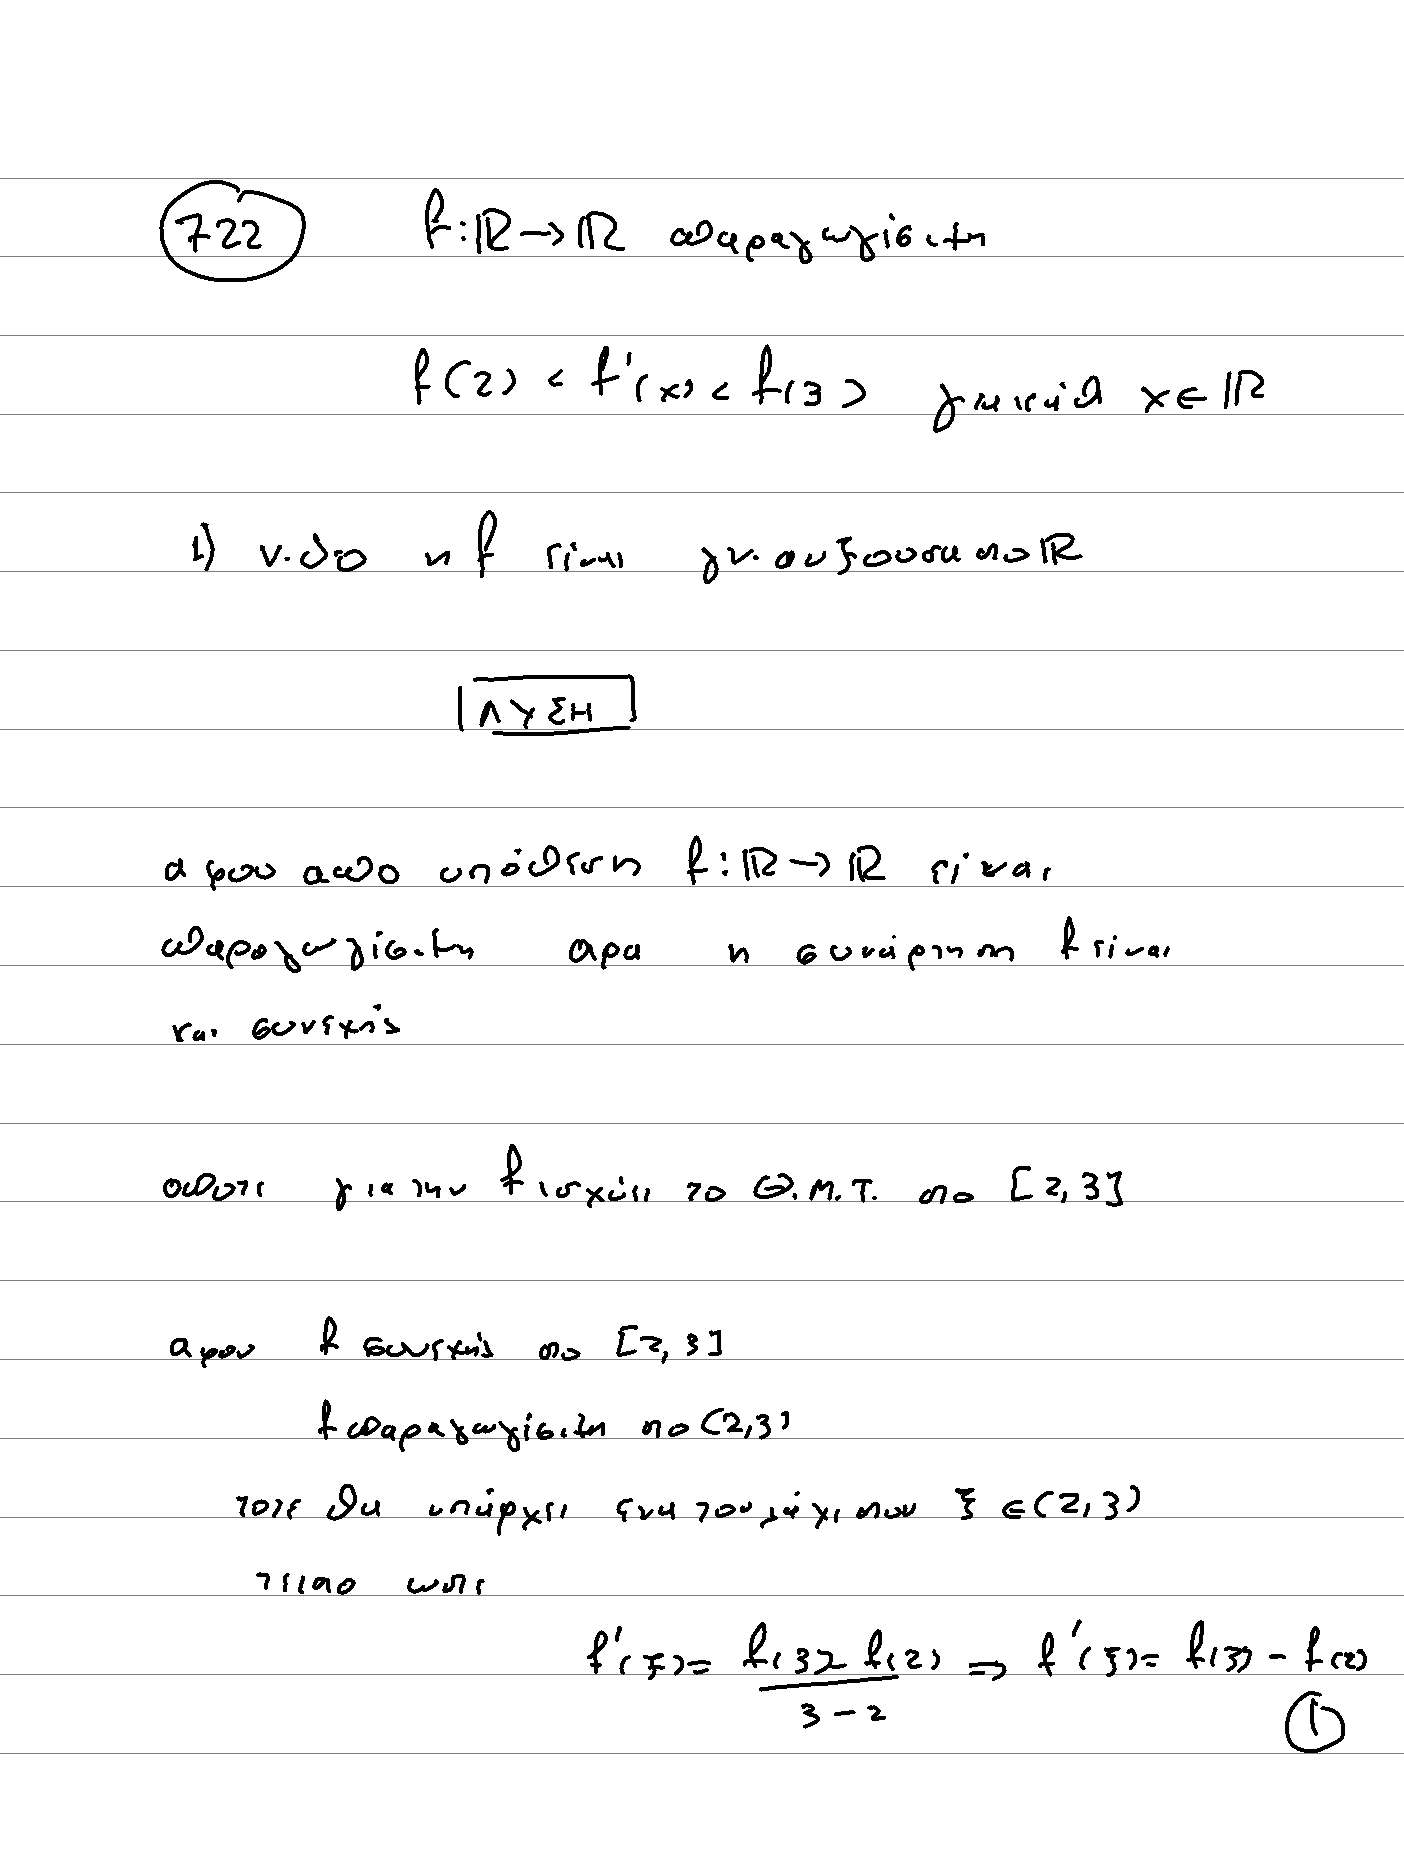 722 f:ℝ→ℝ παραγωγίσιμη
f(2) < f'(x) < f(3) για κάθε x∈ℝ
1) ν.δο η f είναι γν. αυξουσα στο ℝ
ΛΥΣΗ
αφου απο υπόθεση f:ℝ→ℝ είναι
παραγωγίσιμη αρα η συνάρτηση f είναι
και συνεχής
οποτε για την f ισχύει το Θ.Μ.Τ. στο [2,3]
αφου f συνεχής στο [2,3]
f παραγωγίσιμη στο (2,3)
τοτε θα υπάρχει ενα τουλάχιστον ξ ∈(2,3)
τετοιο ωστε
f'(ξ)= f(3)-f(2) / 3-2 ⇒ f'(ξ)= f(3) - f(2)
①